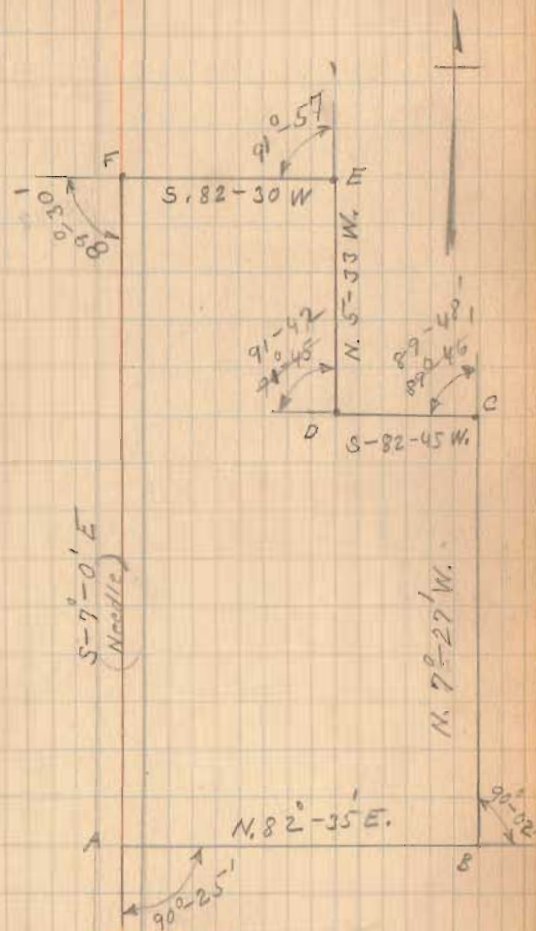 91°-57
F
E
S. 82-30 W
89°-30'
N. 5-33 W.
91-42
91°-45
89-48
89°-46
D
C
S-82-45 W.
S-7°-0' E
(Needle)
N. 7°-27' W.
N. 82°-35' E.
90°-02'
A
B
90°-25'